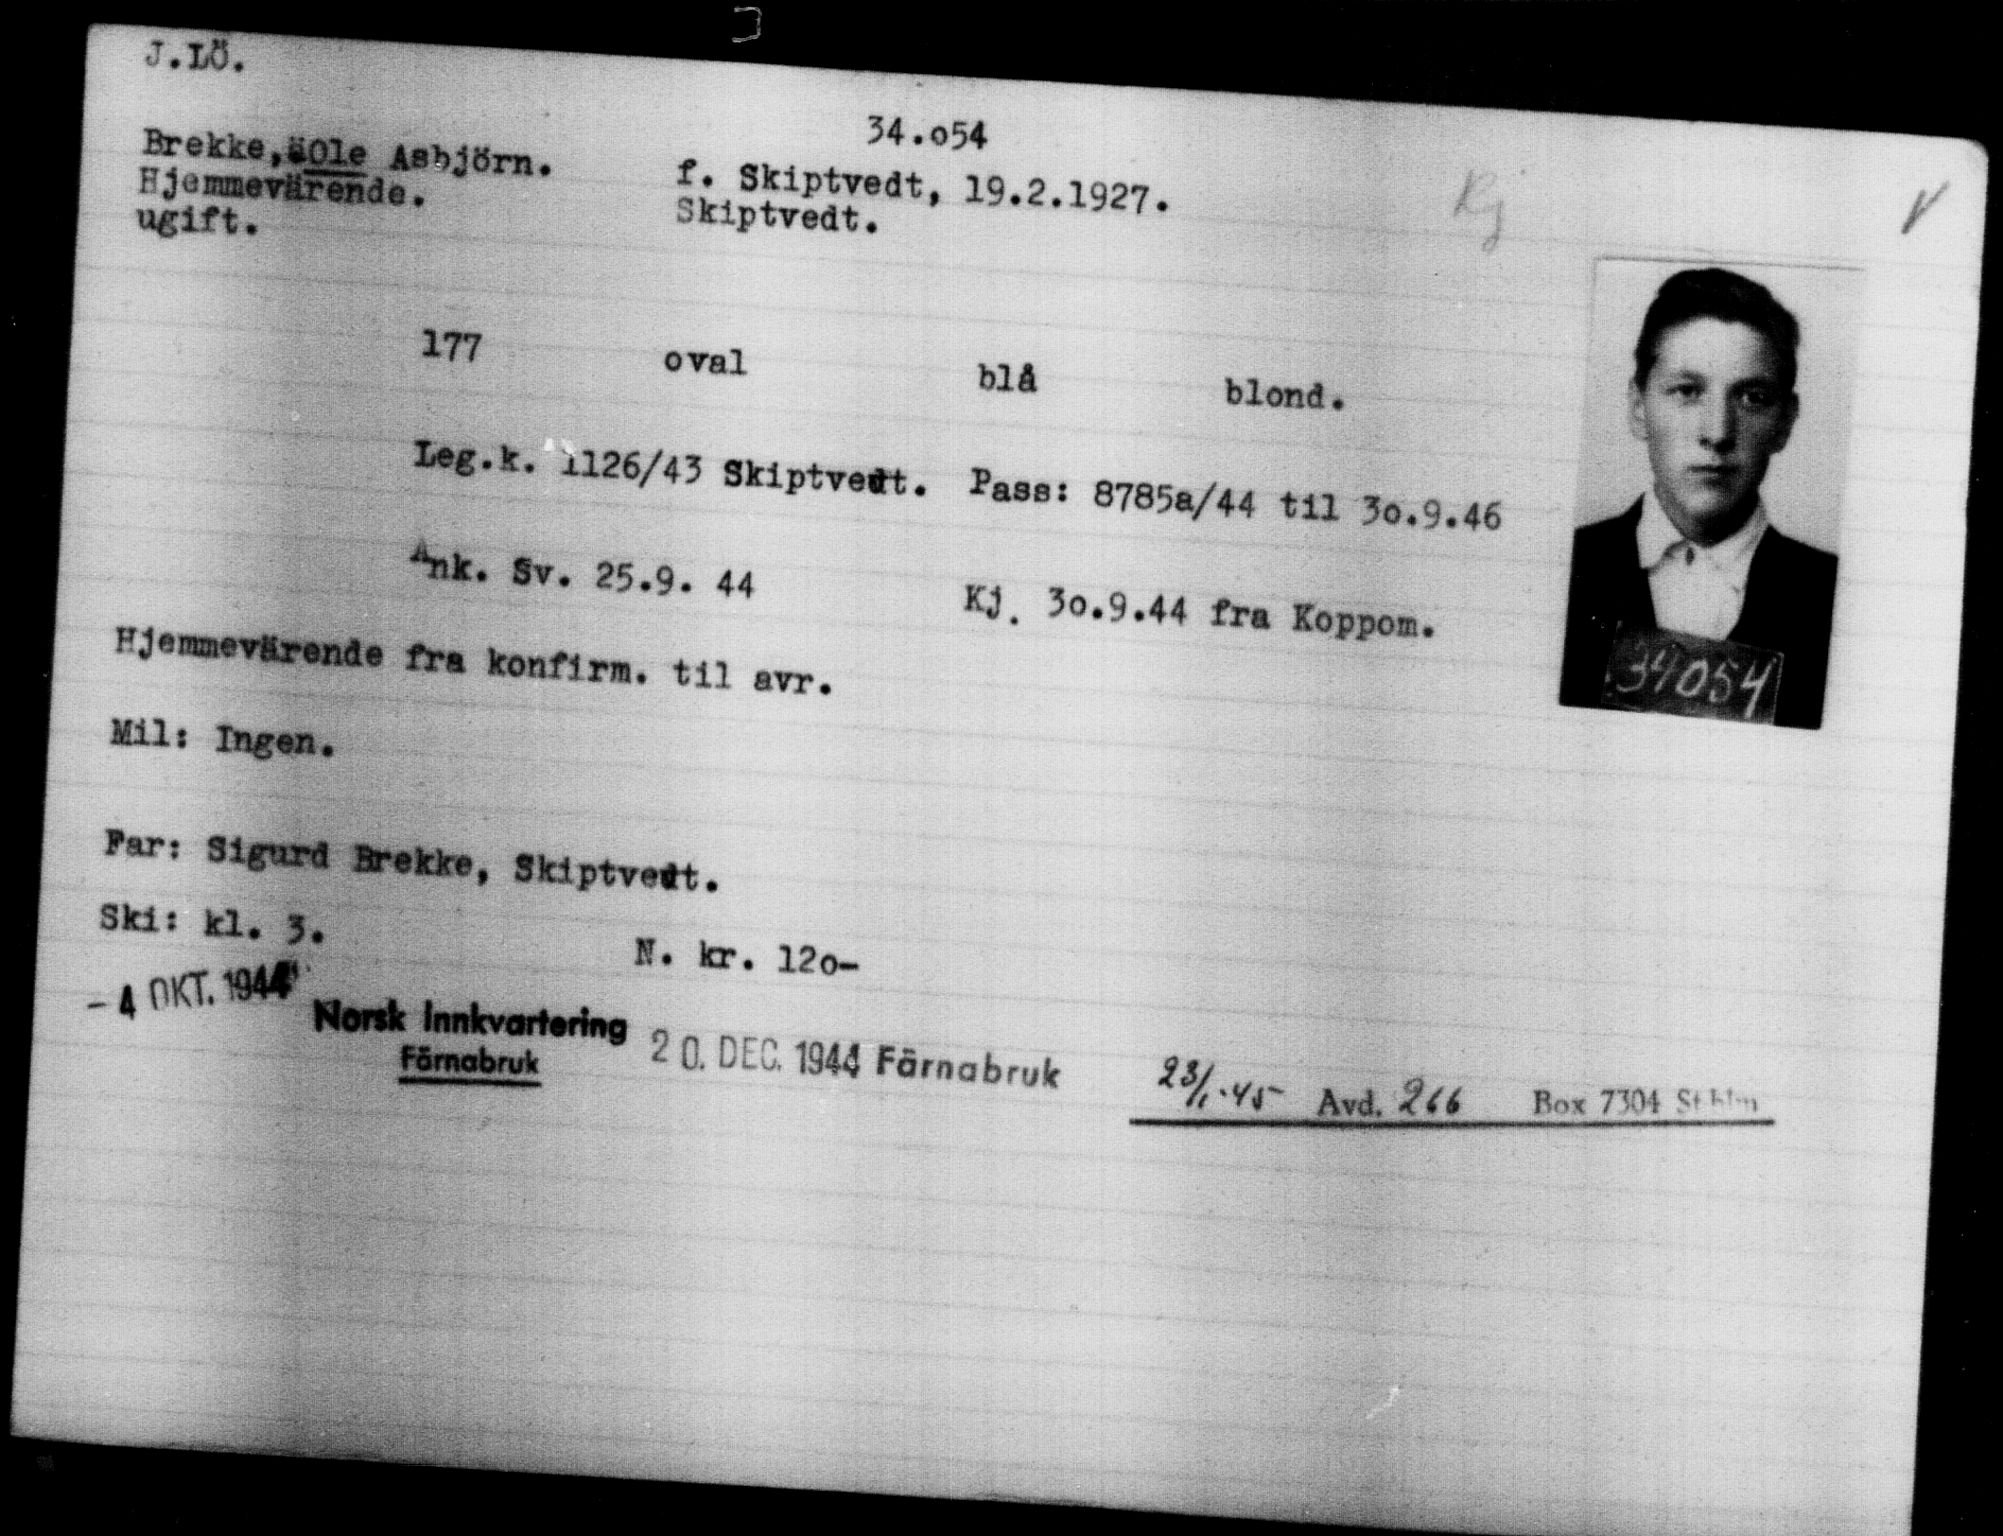 J.LÖ.
34.o54
Brekke, Ole Asbjörn.
f. Skiptvedt, 19.2.1927.
Hjemmevärende.
Skiptvedt.
ugift.
177 oval blå blond.
Leg.k. 1126/43 Skiptvedt. Pass: 8785a/44 til 3o.9.46
Ank. Sv. 25.9. 44 Kj. 3o.9.44 fra Koppom.
34054
Hjemmevärende fra konfirm. til avr.
Mil: Ingen.
Far: Sigurd Brekke, Skiptvedt.
Ski: kl. 3.
N. kr. 12o-
- 4 OKT. 1944
Norsk Innkvartering
Färnabruk
20. DEC. 1944 Färnabruk
23/1.45 Avd. 266 Box 7304 Sthlm